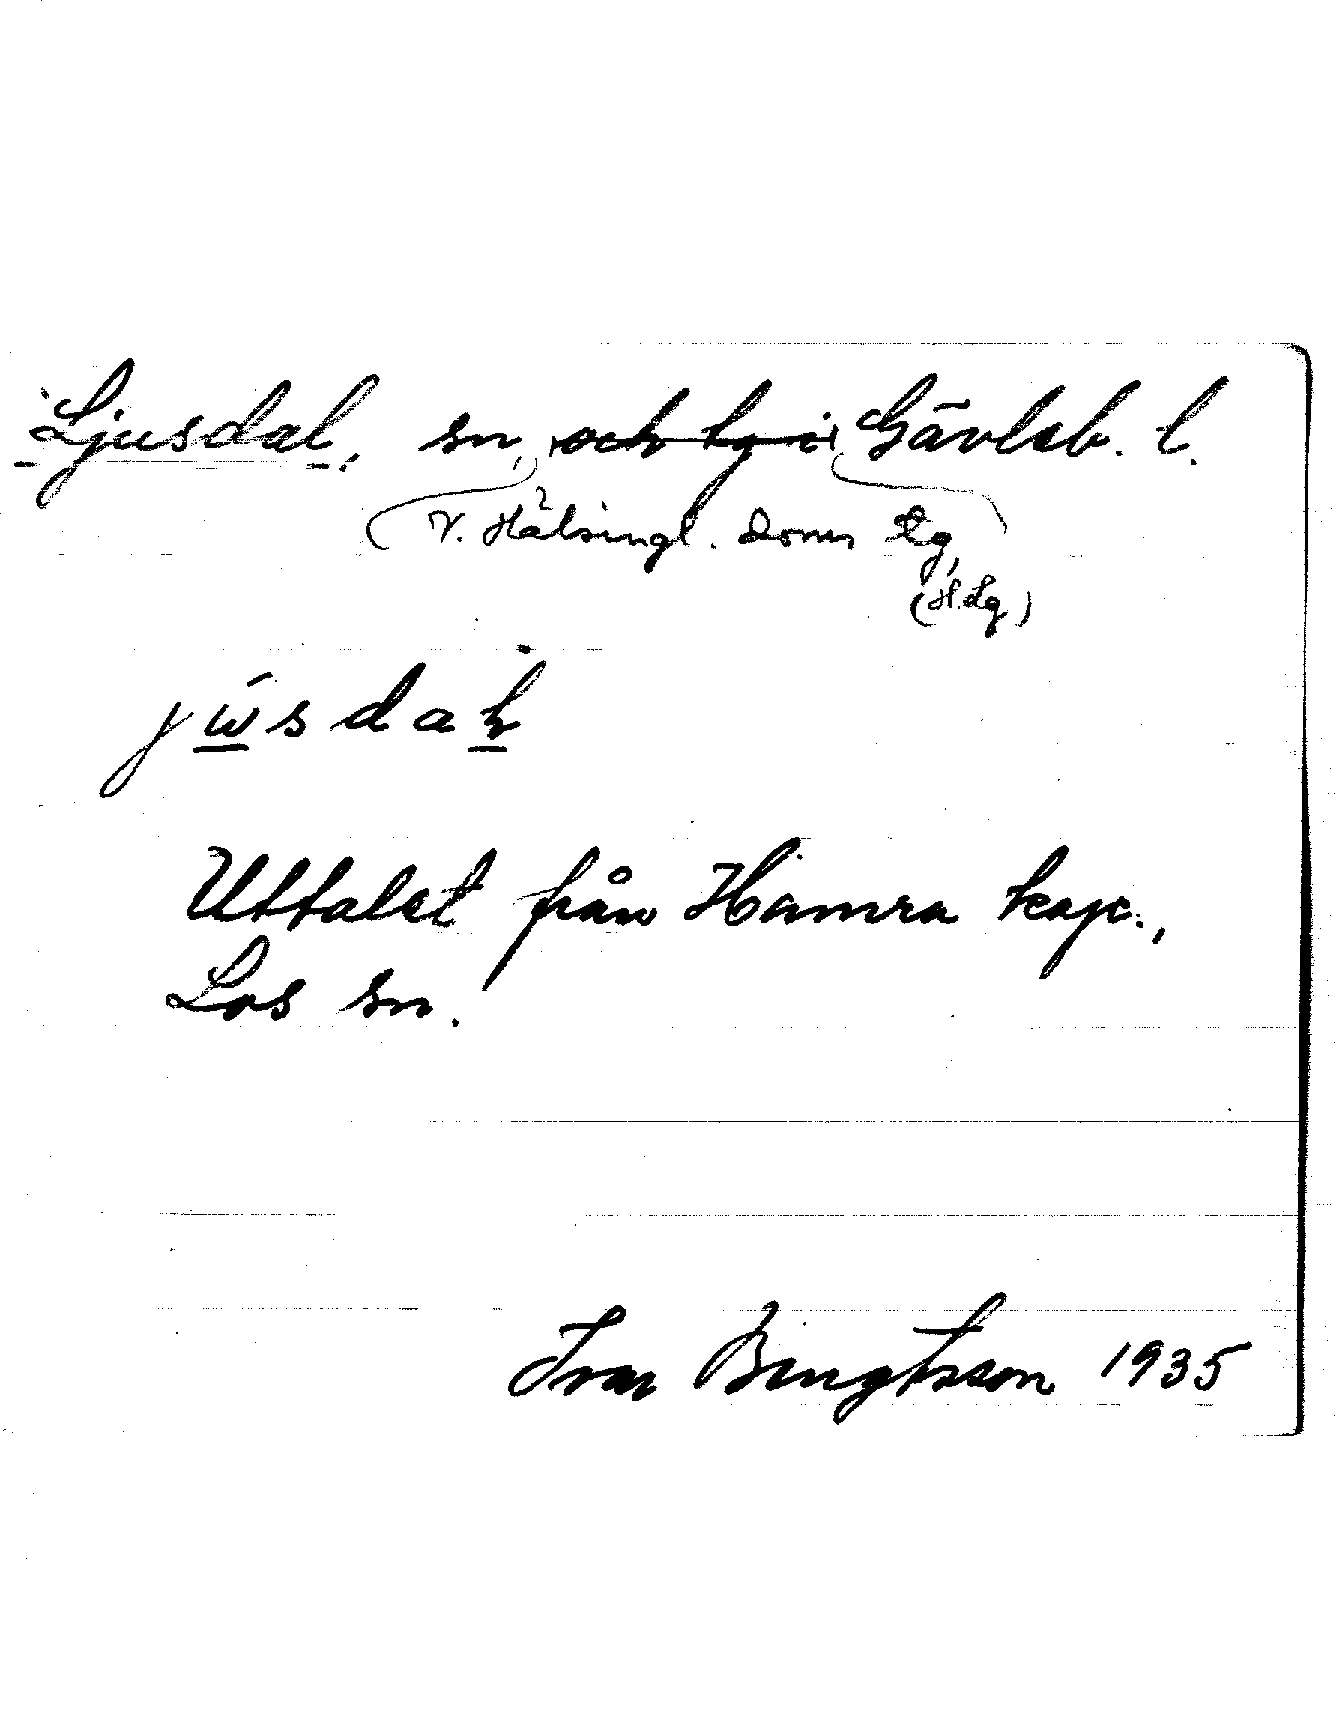 Ljusdal, sn och tg i Gävleb. l.
V. Hälsingl. doms tg,
(H. Lg)
jẃsdaɫ
Uttalet från Hamra kap.,
Los sn.
Ivar Bengtsson 1935